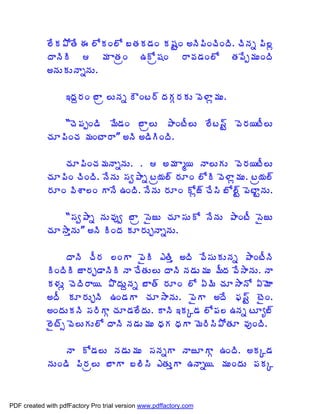 లేకపోతే ఈ లోకంలో బతకడం కష్టం అనిపించింది. చిన్న పిల్ల
దానికి ఆ మాత్రం ఉక్రోషం రావడంలో తప్పేముంది
అనుకున్నాను.
ఇద్దరం బ్రా లున్న కౌంటర్ దగ్గరకు వెళ్లాము.
"చెప్పండి మేడం బ్రాలు పాంటీలు లేటెస్ట్ వెరయిటీలు
చూపించ మంటారా" అని అడిగింది.
చూపించమన్నాను. . ఆ అమ్మాయి నాలుగు వెరయిటీలు
చూపిం చింది. నేను స్వప్నా ట్రయల్ రూం లోకి వెళ్లాము. ట్రయల్
రూం విశాలం గానే ఉంది. నేను రూం క్లోజ్ చేసి బోల్ట్ పెట్టాను.
"స్వప్నా నువ్వు బ్రా సైజు చూసుకో నేను పాంటీ సైజు
చూస్తాను" అని కింద కూరున్నాను.
దాని చీర లంగా పైకి ఎత్తి అది వేసుకున్న పాంటీని
కిందికి జార్చడానికి నా చేతులు దాని నడుము మీద వేసాను. నా
కళ్లు చెదిరాయి. పొద్దున్న బాత్ రూం లో ఏమి చూసానో ఏమో
అదీ కూరుచ్ని ఉండగా చూసాను. పైగా అదే ఫస్ట్ టైం.
అందుకని సరిగ్గా చూడలేదు. కాని ఇక్కడ లోపల ఉన్న ట్యూబ్
లైట్స్ వెలుగులో దాని నడుము ధగ ధగా మెరిసిపోతూ వుంది.
నా కోడలు నడుము సన్నగా నాజూగ్గా ఉంది. అక్కడ
నుండి పిర్రలు బాగా బలిసి ఎత్తుగా ఉన్నాయి. ముందు పక్క
PDF created with pdfFactory Pro trial version www.pdffactory.com